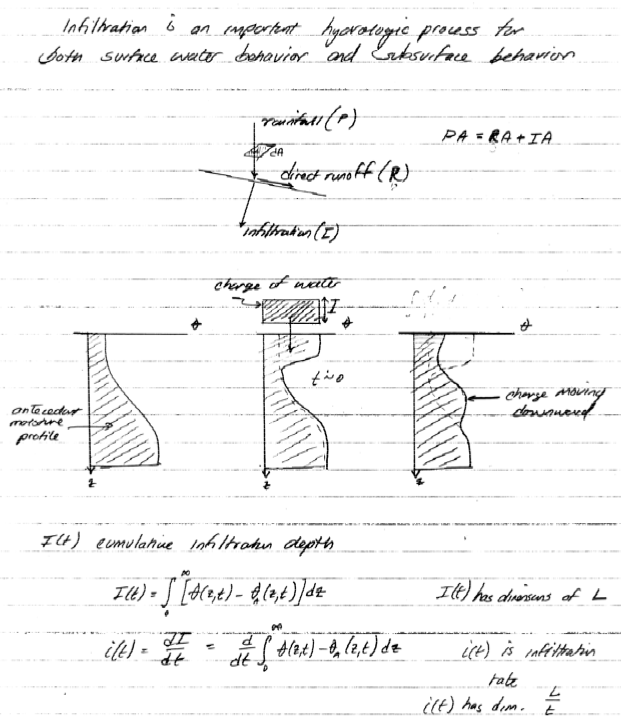 Infiltration is an important hydrologic process for
both surface water behavior and subsurface behavior
rainfall (P)
dA
PA = RA + IA
direct runoff (R)
infiltration (I)
charge of water
I
θ
θ
θ
t≈0
antecedant
moisture
profile
charge moving
downward
z
z
z
I(t) cumulative infiltration depth
I(t) = ∫₀^∞ [θ(z,t) - θₐ(z,t)] dz
I(t) has dimensions of L
i(t) = dI/dt = d/dt ∫₀^∞ θ(z,t) - θₐ(z,t) dz
i(t) is infiltration
rate
i(t) has dim. L/t